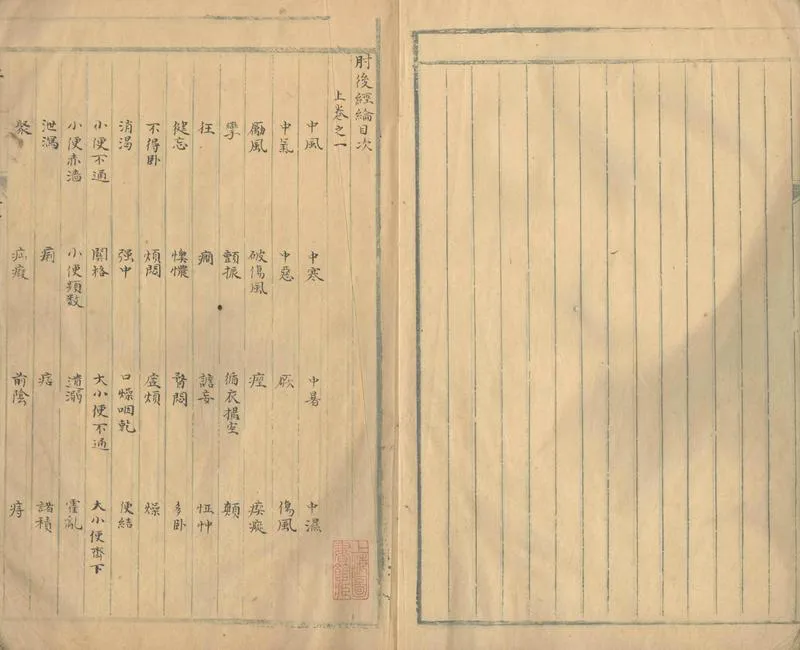 肘後經綸目次
上卷之一
中風 中寒 中暑 中濕
中氣 中惡 厥 傷風
勵風 破傷風 痙 瘈瘲
攣 顫振 循衣摸空 顛
狂 癇 譫妄 怔忡
健忘 懊憹 瞀悶 多卧
不得卧 煩悶 虛煩 燥
消渴 强中 口燥咽乾 便結
小便不通 關格 大小便不通 大小便齊下
小便赤濇 小便頻数 遺溺 霍亂
泄瀉 痢 痞 諸積
聚 疝瘕 前陰 痔
上海圖書館藏